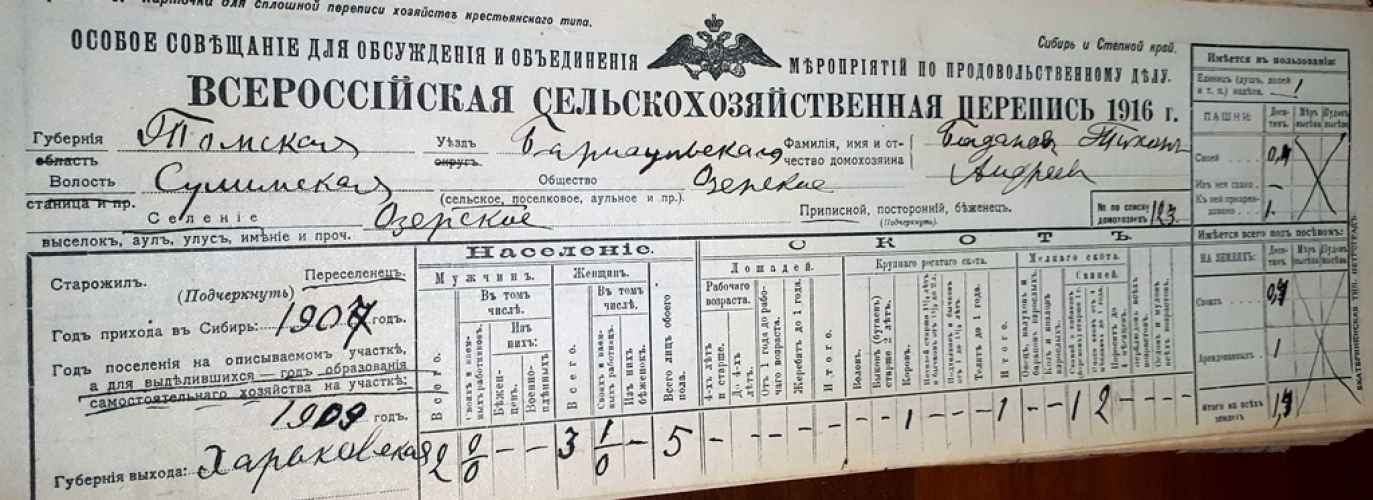 Карточка для сплошной переписи хозяйствъ крестьянскаго типа.
Сибирь и Степной край.
ОСОБОЕ СОВѢЩАНІЕ ДЛЯ ОБСУЖДЕНІЯ И ОБЪЕДИНЕНІЯ МѢРОПРІЯТІЙ ПО ПРОДОВОЛЬСТВЕННОМУ ДѢЛУ.
ВСЕРОССІЙСКАЯ СЕЛЬСКОХОЗЯЙСТВЕННАЯ ПЕРЕПИСЬ 1916 г.
Губернія Томская Уѣздъ Барнаульскаго Фамилія, имя и от- Богданов Тихон
область округъ. чество домохозяина Андреев
Волость Сулимская Общество Озерское
станица и пр. (сельское, поселковое, аульное и пр.).
Селеніе Озерское Приписной, посторонній, бѣженецъ. № по списку домохозяевъ 123.
выселокъ, аулъ, улусъ, имѣніе и проч. (Подчеркнуть).
Старожилъ. Переселенецъ.
(Подчеркнуть)
Годъ прихода въ Сибирь: 1907 годъ.
Годъ поселенія на описываемомъ участкѣ,
а для выдѣлившихся — годъ образованія
самостоятельнаго хозяйства на участкѣ:
1909 годъ.
Губернія выхода: Харьковская
Населеніе.
Мужчинъ. Женщинъ.
Всего.
Своихъ и наем-ныхъ работниковъ.
Въ томъ числѣ.
Изъ нихъ:
Бѣжен-цевъ.
Военно-плѣнныхъ
Всего.
Въ томъ числѣ.
Изъ нихъ бѣженокъ.
Всего лицъ обоего пола.
2 0/0 – – 3 1/0 – 5
СКОТЪ
Лошадей.
Рабочаго возраста.
4-хъ лѣтъ и старше.
До 4-хъ лѣтъ.
Отъ 1 года до рабо-чаго возраста.
Жеребятъ до 1 года.
Итого.
Крупнаго рогатаго скота.
Воловъ.
Быковъ (бугаевъ) старше 2 лѣтъ.
Коровъ.
Телятъ до 1 года.
Итого.
Мелкаго скота.
Козъ и козловъ взрослыхъ.
Свиней.
– – – – – – – 1 – – – 1 – – 1 2 – – – –
Имѣется въ пользованіи:
Единицъ (душ, долей и т. п.) надѣла. 1
ПАШНИ: Деся-тинъ. Мѣръ высѣва. Пудовъ высѣва.
Своей
Изъ нея сдано –
Къ ней приарен-довано 1.
Имѣется всего подъ посѣвомъ:
НА ЗЕМЛЯХЪ: Деся-тинъ. Мѣръ высѣва. Пудовъ высѣва.
Своихъ
Арендованныхъ 1
Итого на всѣхъ земляхъ
ЕКАТЕРИНИНСКАЯ ТИП. ПЕТРОГРАДЪ.